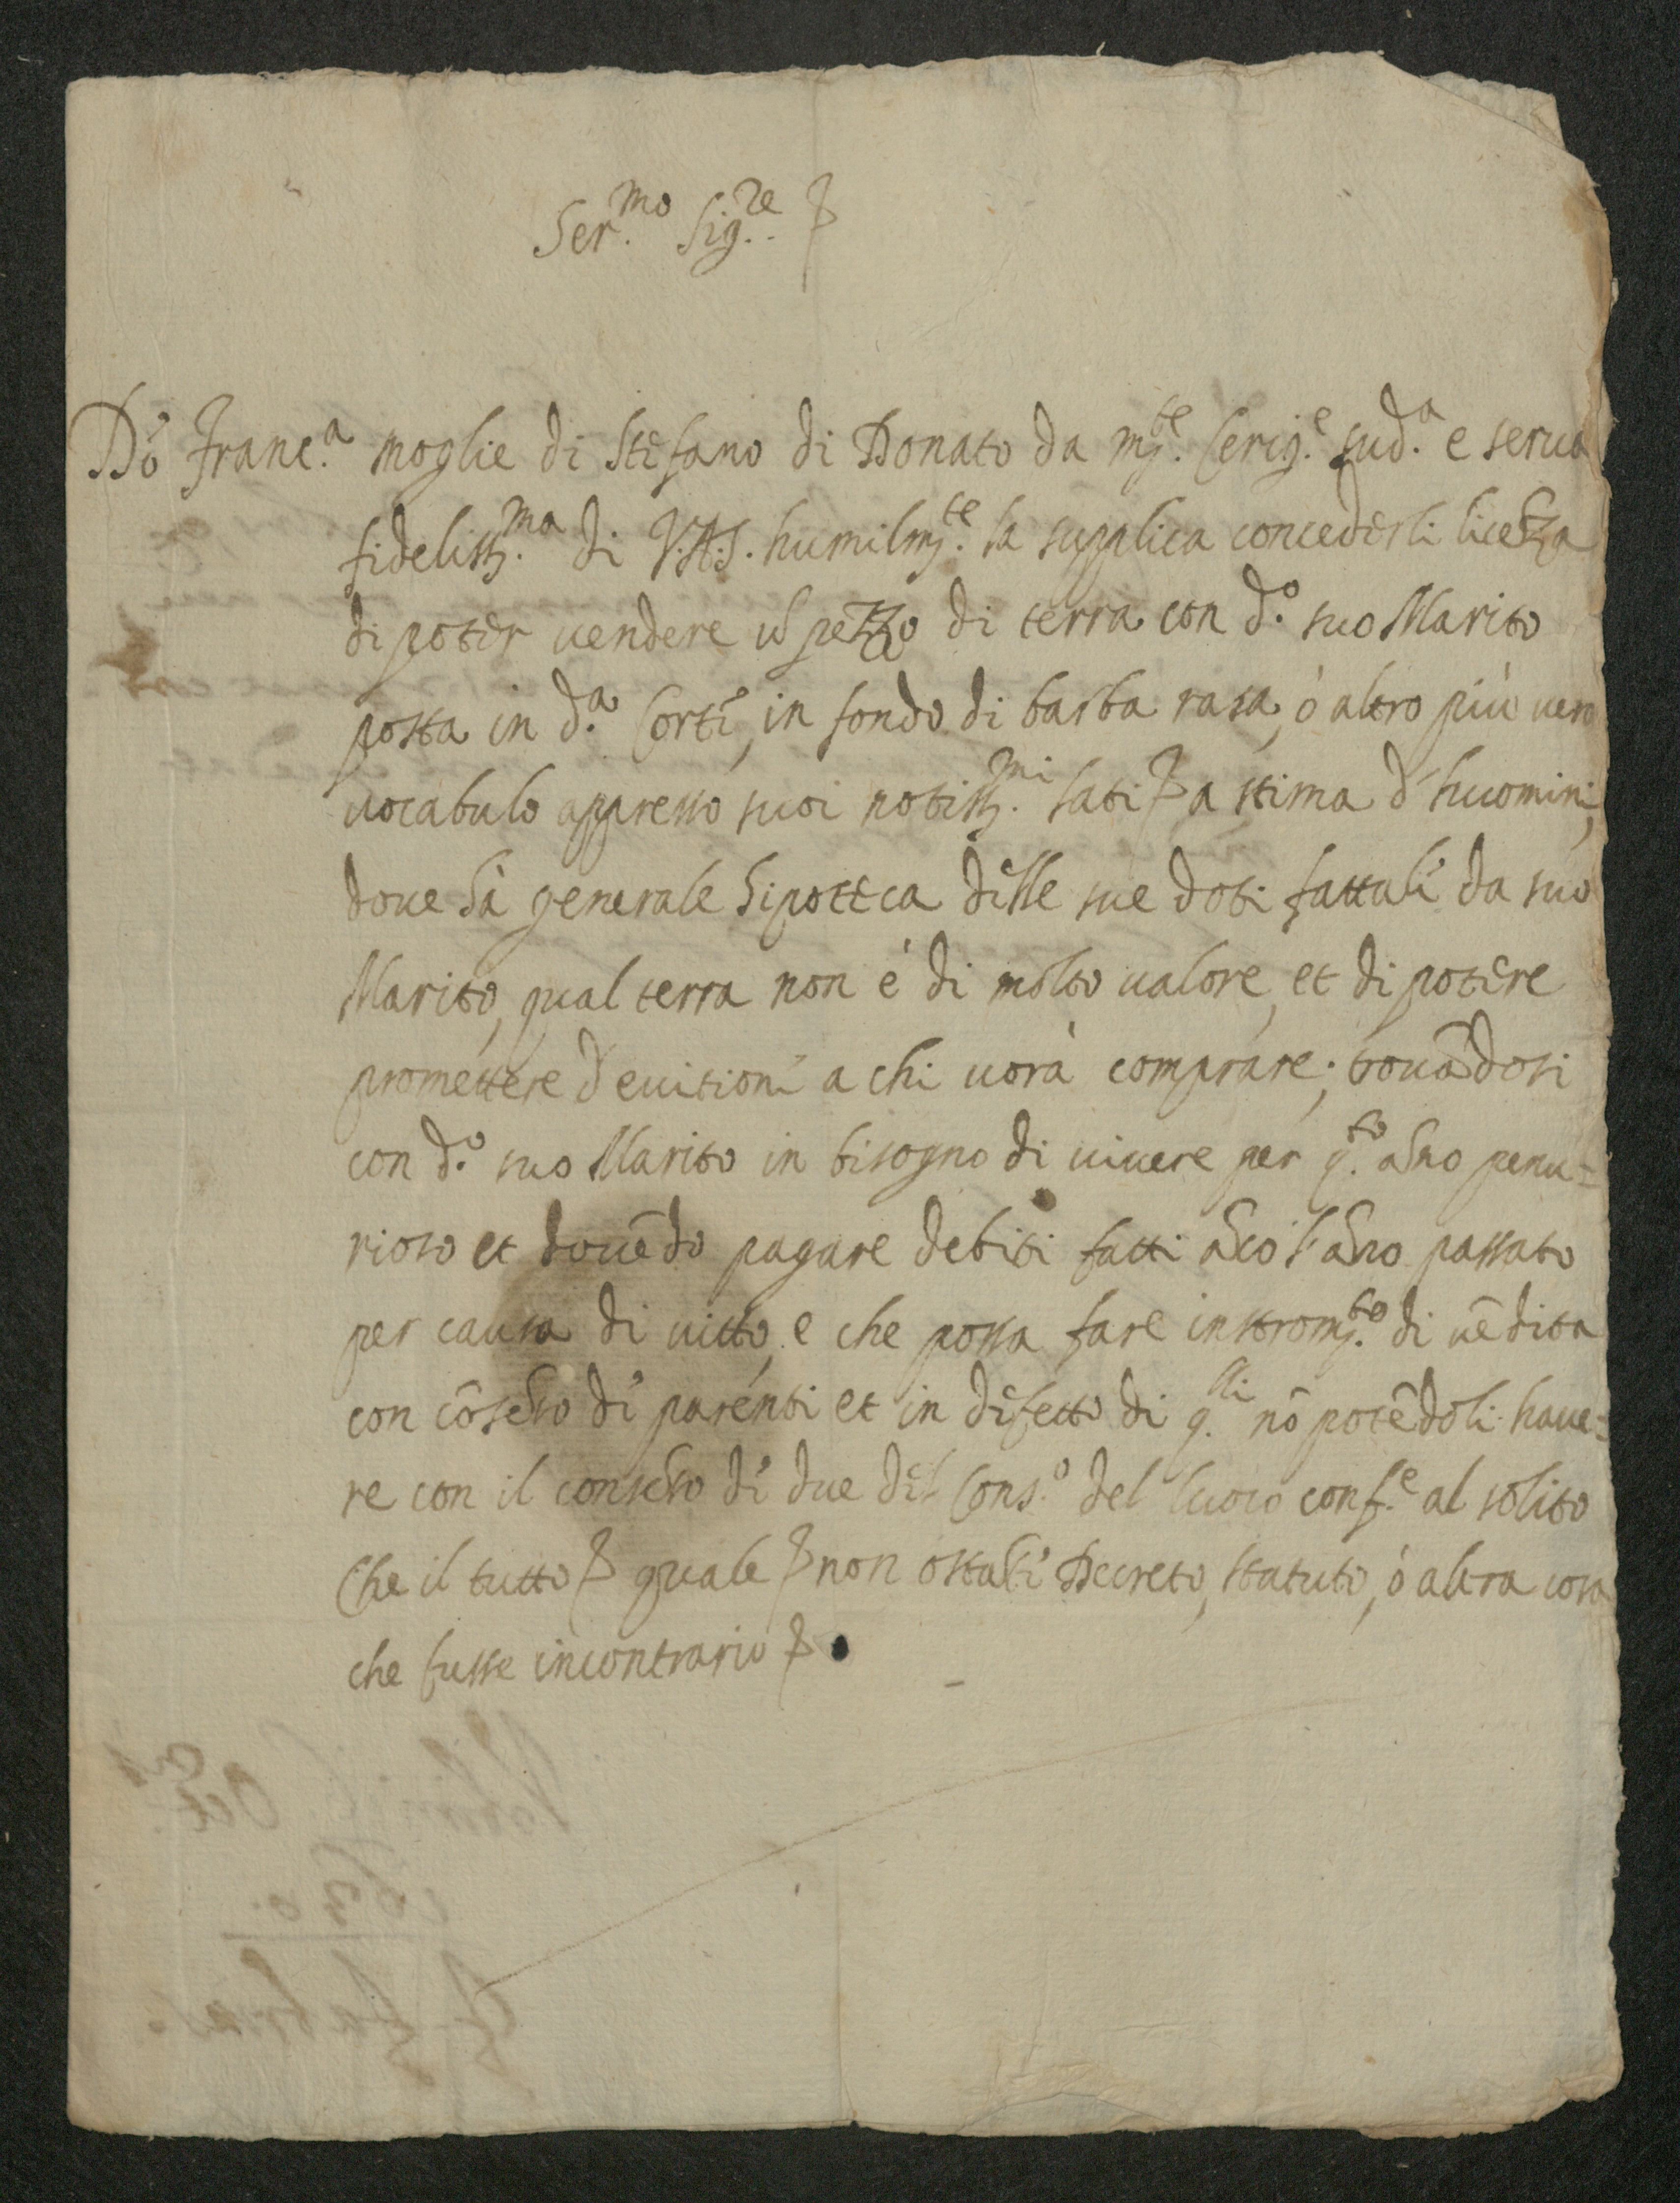 Ser.mo Sig.re
Dõ Franc.a moglie di Stefano di Donato da m.te Cerig.e sud.a e serua
fideliss.ma di V.A.S. humilm.te la supplica concederli licẽza
di poter uendere ũ pezzo di terra con d.o suo Marito
posta in d.a Corte, in fondo di barba rasa, ò altro più uero
uocabulo appresso suoi notiss.mi lati a stima d'huomini,
doue hà generale hipoteca delle sue doti fattali da suo
Marito, qual terra non è di molto ualore, et di potere
promettere d'euitioni a chi uorà comprare; trouãdosi
con d.o suo Marito in bisogno di uiuere per q.to añno penu=
rioso et douẽdo pagare debiti fatti ãco l'añno passato
per causa di uitto, e che possa fare instrom.to di uẽdita
con cõsẽso di parenti et in difetto di q.lli nõ potẽdoli haue=
re con il consẽso di due del Cons.o del luoco conf.e al solito
Che il tutto quale non ostãte Decreto, statuto, ò altra cosa
che fusse incontrario